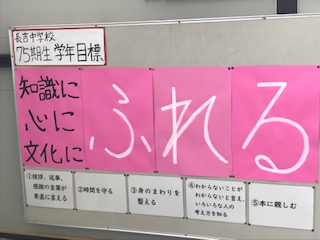 長吉中学校
75期生 学年目標
知識に
心に
文化に
ふれる
①挨拶、返事、
感謝の言葉が
素直に言える
②時間を守る
③身のまわりを
整える
④わからないことが
わからないと言え、
いろいろな人の
考え方を知る
⑤本に親しむ